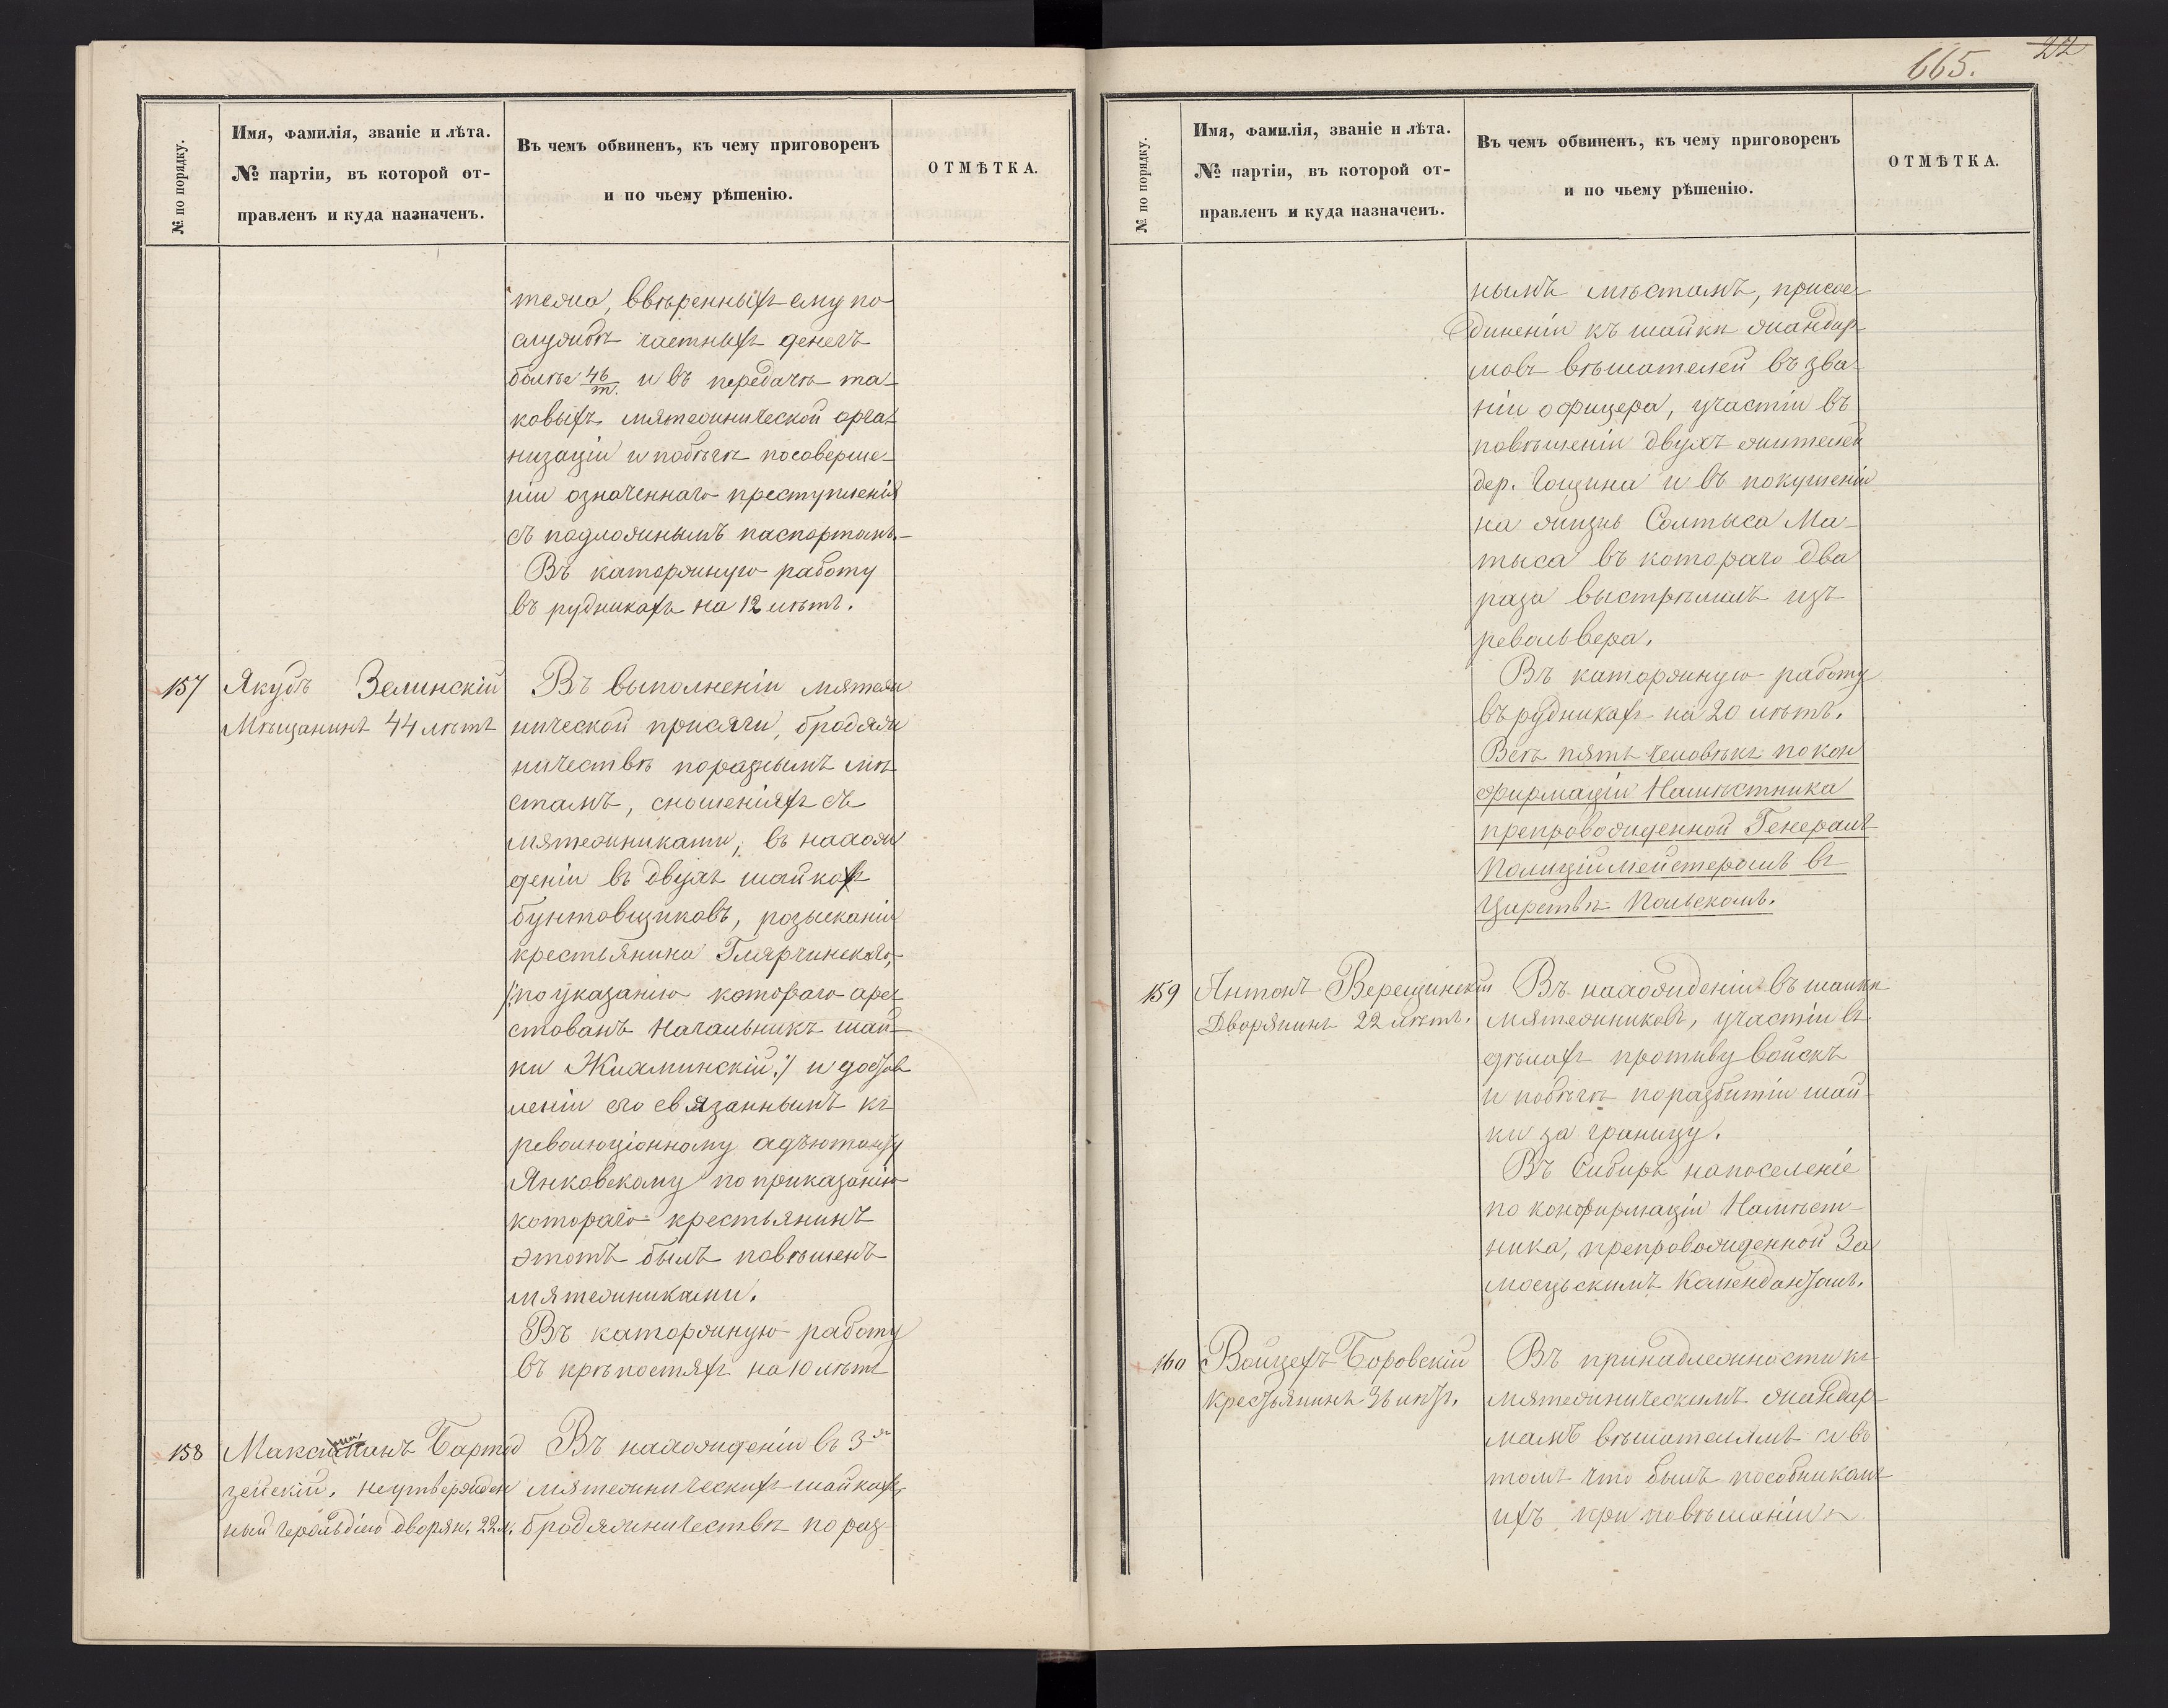 665. 22
№ по порядку.
Имя, фамилія, званіе и лѣта.
№ партіи, въ которой от-
правленъ и куда назначенъ.
Въ чемъ обвиненъ, къ чему приговоренъ
и по чьему рѣшенію.
ОТМѢТКА.
тежа, ввѣренныхъ ему по
службѣ частныхъ денегъ
болѣе 46/т. и въ передачѣ та-
ковыхъ мятежнической орга-
низаціи и побѣгѣ по соверше-
ніи означеннаго преступленія
съ подложнымъ паспортомъ.-
Въ каторжную работу
въ рудникахъ на 12 лѣтъ.
157 Якубъ Зелинскій
Мѣщанинъ 44 лѣтъ
Въ выполненіи мятеж
нической присяги, бродяж
ничествѣ по разнымъ мѣ
стамъ, сношеніяхъ съ
мятежниками, въ нахож
деніи въ двухъ шайкахъ
бунтовщиковъ, розысканіи
крестьянина Глярчинскаго,
/:по указанію котораго арес
стованъ Начальникъ шай-
ки Жихлинскій:/ и достав
леніи его связаннымъ къ
революціонному адъютанту
Янковскому по приказанію
котораго крестьянинъ
этотъ былъ повѣшенъ
мятежниками.
Въ каторжную работу
въ крѣпостяхъ на 10 лѣтъ
158 Максимиліанъ Бартод
зейскій, неутвержден
ный герольдіею дворян. 22 л.
Въ нахожденіи въ 3-х
мятежническихъ шайкахъ,
бродяжничествѣ по раз
№ по порядку.
Имя, фамилія, званіе и лѣта.
№ партіи, въ которой от-
правленъ и куда назначенъ.
Въ чемъ обвиненъ, къ чему приговоренъ
и по чьему рѣшенію.
ОТМѢТКА.
нымъ мѣстамъ, присое-
диненіи къ шайки жандар-
мовъ вѣшателей въ зва-
ніи офицера, участіи въ
повѣшеніи двухъ жителей
дер. Гощина и въ покушеніи
на жизнь Солтыса Ма-
тыса въ котораго два
раза выстрѣлилъ изъ
револьвера.
Въ каторжную работу
въ рудникахъ на 20 лѣтъ.
Всѣ пять человѣкъ по кон
фирмаціи Намѣстника
препровожденной Генералъ
Полиціймейстеромъ въ
Царствѣ Польскомъ.
159 Антонъ Верещинскій
Дворянинъ 22 лѣтъ.
Въ нахожденіи въ шайки
мятежниковъ, участіи въ
дѣлахъ противу войскъ
и побѣгѣ по разбитіи шай-
ки за границу.
Въ Сибирь на поселеніе
по конфирмаціи Намѣст-
ника, препровожденной За
мосцьскимъ Комендантомъ.
160 Войцехъ Боровскій
Крестьянинъ 36 лѣтъ.
Въ принадлежности къ
мятежническимъ жандар-
мамъ вѣшателямъ и въ
томъ что былъ пособникомъ
ихъ при повѣшаніи